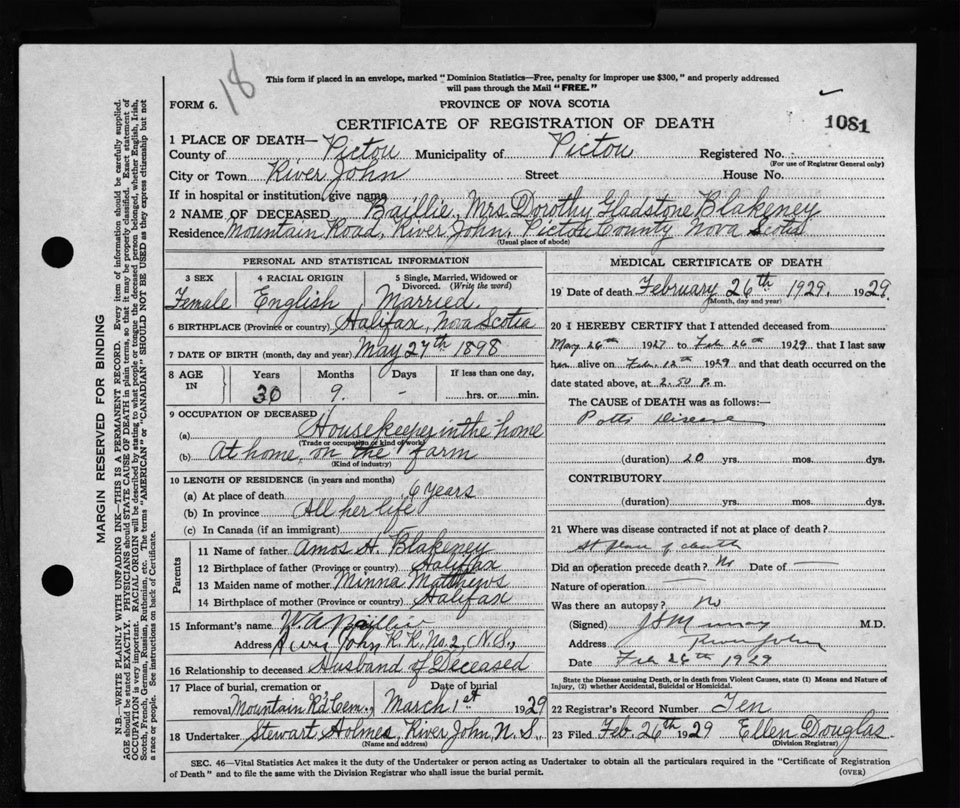 18
This form if placed in an envelope, marked "Dominion Statistics—Free, penalty for improper use $300," and properly addressed
will pass through the Mail "FREE."
FORM 6.
PROVINCE OF NOVA SCOTIA
CERTIFICATE OF REGISTRATION OF DEATH
1081
1 PLACE OF DEATH—
County of Pictou Municipality of Pictou Registered No.
(For use of Registrar General only)
City or Town River John Street House No.
If in hospital or institution, give name
2 NAME OF DECEASED Baillie, Mrs. Dorothy Gladstone Blakeney
Residence Mountain Road, River John, Pictou County Nova Scotia
(Usual place of abode)
PERSONAL AND STATISTICAL INFORMATION
3 SEX 4 RACIAL ORIGIN 5 Single, Married, Widowed or Divorced. (Write the word)
Female English Married.
6 BIRTHPLACE (Province or country) Halifax, Nova Scotia
7 DATE OF BIRTH (month, day and year) May 27th 1898
8 AGE IN Years Months Days If less than one day,
30 9. - hrs. or min.
9 OCCUPATION OF DECEASED
(a) Housekeeper in the home
(Trade or occupation or kind of work)
(b) At home, on the farm
(Kind of industry)
10 LENGTH OF RESIDENCE (in years and months)
(a) At place of death 6 years
(b) In province All her life
(c) In Canada (if an immigrant)
Parents
11 Name of father Amos H. Blakeney
12 Birthplace of father (Province or country) Halifax
13 Maiden name of mother Minna Matthews
14 Birthplace of mother (Province or country) Halifax
15 Informant's name Baillie
Address River John R.R. No. 2, N.S.,
16 Relationship to deceased Husband of Deceased
17 Place of burial, cremation or removal Date of burial
Mountain Rd Cem., March 1st 1929
18 Undertaker Stewart Holmes, River John, N.S.,
(Name and address)
MEDICAL CERTIFICATE OF DEATH
19 Date of death February 26th 1929. 1929
(Month, day and year)
20 I HEREBY CERTIFY that I attended deceased from
May 26th 1927 to Feb 26th 1929 that I last saw
her alive on Feb. 12th 1929 and that death occurred on the
date stated above, at 2.50 P.m.
The CAUSE of DEATH was as follows:—
Potts Disease
(duration) 20 yrs. mos. dys.
CONTRIBUTORY
(duration) yrs. mos. dys.
21 Where was disease contracted if not at place of death?
At place of death
Did an operation precede death? No Date of —
Nature of operation —
Was there an autopsy? No
(Signed) Murray M.D.
Address River John
Date Feb 26th 1929
State the Disease causing Death, or in death from Violent Causes, state (1) Means and Nature of
Injury, (2) whether Accidental, Suicidal or Homicidal.
22 Registrar's Record Number Ten
23 Filed Feb. 26th 1929 Ellen Douglas.
(Division Registrar)
SEC. 46—Vital Statistics Act makes it the duty of the Undertaker or person acting as Undertaker to obtain all the particulars required in the "Certificate of Registration
of Death" and to file the same with the Division Registrar who shall issue the burial permit.
(OVER)
MARGIN RESERVED FOR BINDING
N.B.—WRITE PLAINLY WITH UNFADING INK—THIS IS A PERMANENT RECORD. Every item of information should be carefully supplied.
AGE should be stated EXACTLY. PHYSICIANS should STATE CAUSE OF DEATH in plain terms, so that it may be properly classified. Exact statement of
OCCUPATION is very important. RACIAL ORIGIN will be described by stating to what people or tongue the deceased person belonged, whether English, Irish,
Scotch, French, German, Russian, Ruthenian, etc. The terms "AMERICAN" or "CANADIAN" SHOULD NOT BE USED as they express citizenship but not
a race or people. See instructions on back of Certificate.